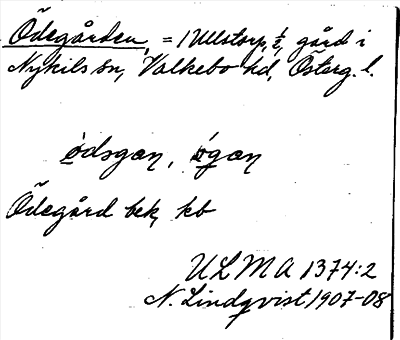 Ödegården, = 1 Ullstorp, ½, gård i
Nykils sn, Valkebo hd, Österg. l.
ödsgan, øgan
Ödegård bek, kb
ULMA 1374:2
N. Lindqvist, 1907-08